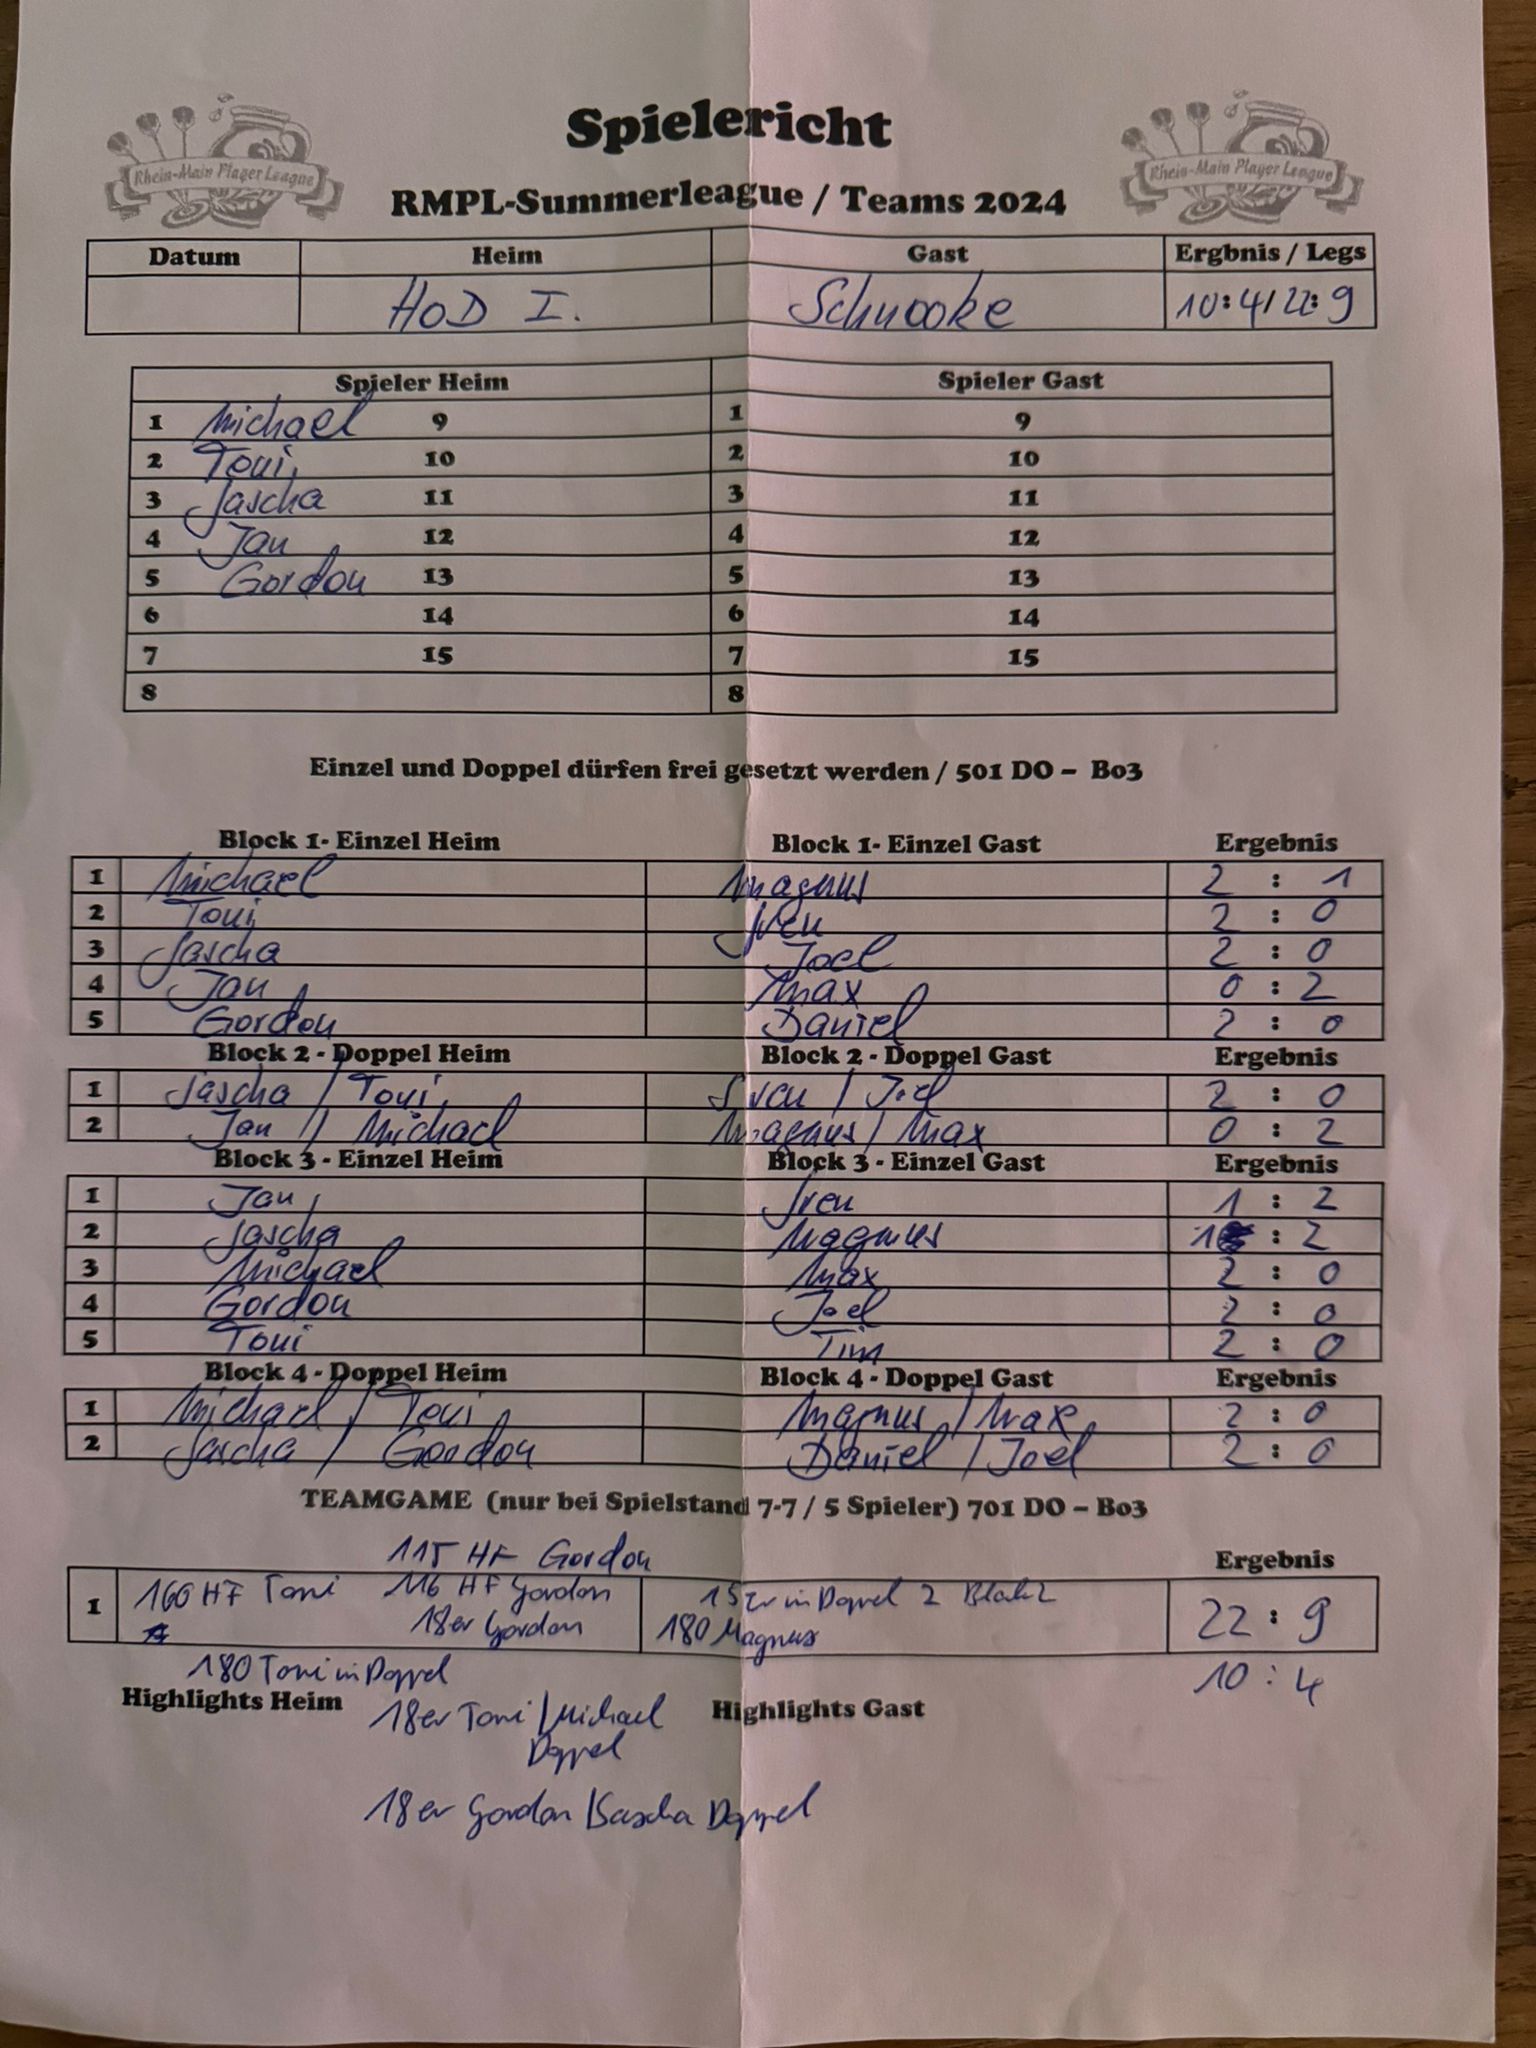 Spielericht
Rhein-Main Player League
Rhein-Main Player League
RMPL-Summerleague / Teams 2024
Datum Heim Gast Ergbnis / Legs
HoD I. Schnooke 10:4/22:9
Spieler Heim Spieler Gast
1 Michael 9 1 9
2 Toni 10 2 10
3 Jascha 11 3 11
4 Jan 12 4 12
5 Gordon 13 5 13
6 14 6 14
7 15 7 15
8 8
Einzel und Doppel dürfen frei gesetzt werden / 501 DO – Bo3
Block 1- Einzel Heim Block 1- Einzel Gast Ergebnis
1 Michael Magnus 2 : 1
2 Toni Sven 2 : 0
3 Jascha Joel 2 : 0
4 Jan Max 0 : 2
5 Gordon Daniel 2 : 0
Block 2 - Doppel Heim Block 2 - Doppel Gast Ergebnis
1 Jascha / Toni Sven / Joel 2 : 0
2 Jan / Michael Magnus / Max 0 : 2
Block 3 - Einzel Heim Block 3 - Einzel Gast Ergebnis
1 Jan Sven 1 : 2
2 Jascha Magnus 1 : 2
3 Michael Max 2 : 0
4 Gordon Joel 2 : 0
5 Toni Tim 2 : 0
Block 4 - Doppel Heim Block 4 - Doppel Gast Ergebnis
1 Michael / Toni Magnus / Max 2 : 0
2 Jascha / Gordon Daniel / Joel 2 : 0
TEAMGAME (nur bei Spielstand 7-7 / 5 Spieler) 701 DO – Bo3
115 HF Gordon Ergebnis
1 160 HF Toni 116 HF Gordon 15er in Doppel 2 Block 2 22 : 9
18er Gordon 180 Magnus
180 Toni in Doppel 10 : 4
Highlights Heim 18er Toni / Michael Highlights Gast
Doppel
18er Gordon / Sascha Doppel